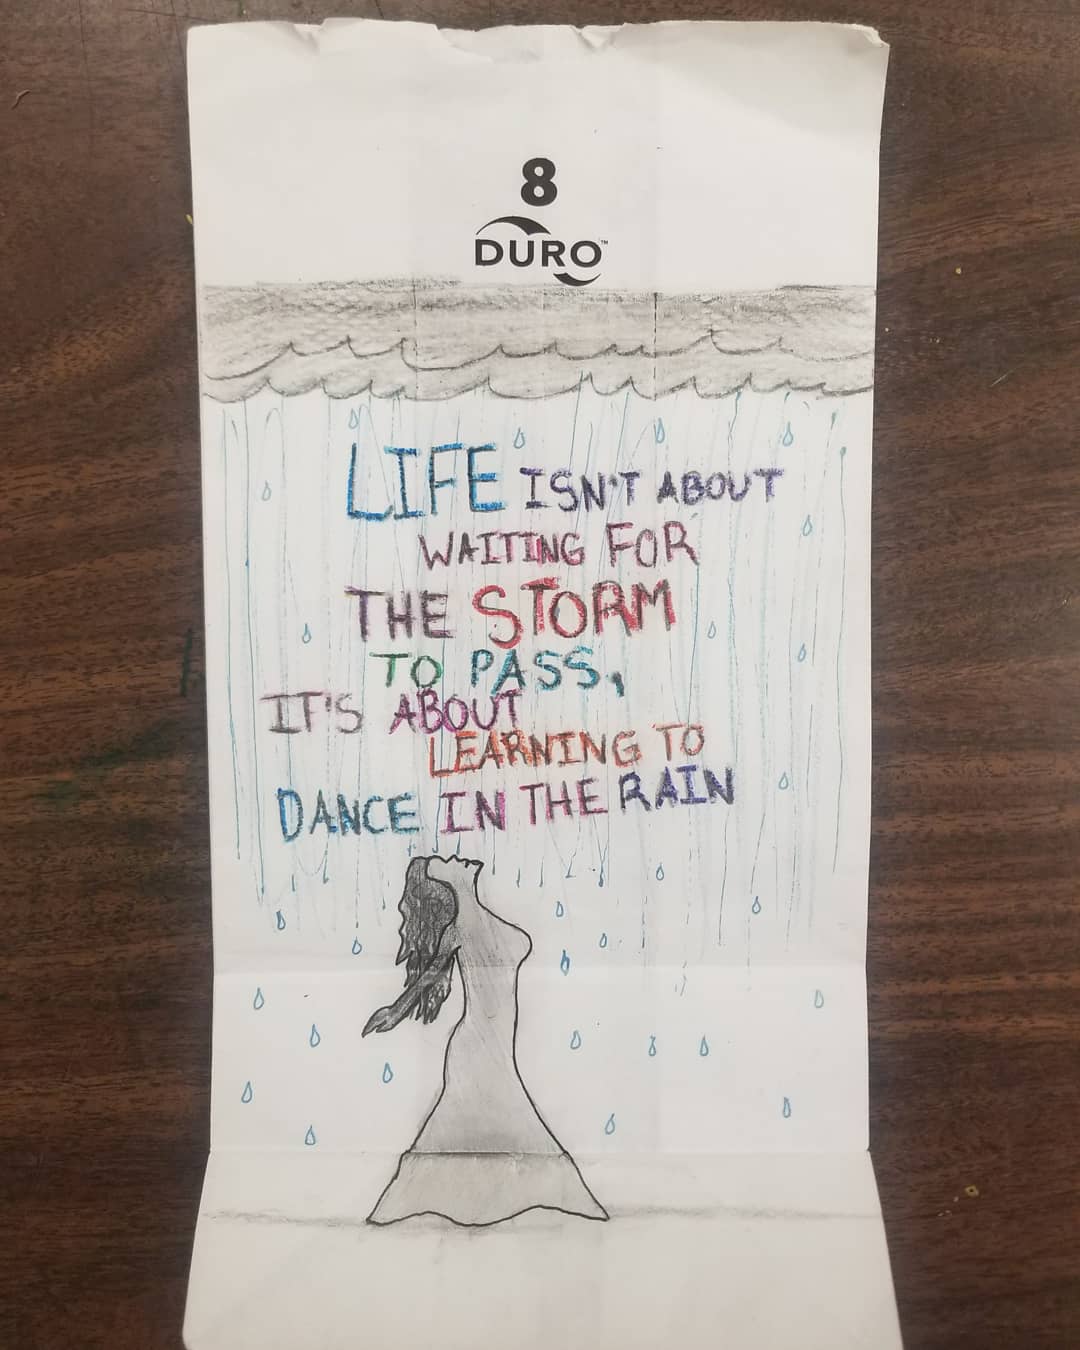 8
DURO™
LIFE ISN'T ABOUT
WAITING FOR
THE STORM
TO PASS,
IT'S ABOUT
LEARNING TO
DANCE IN THE RAIN